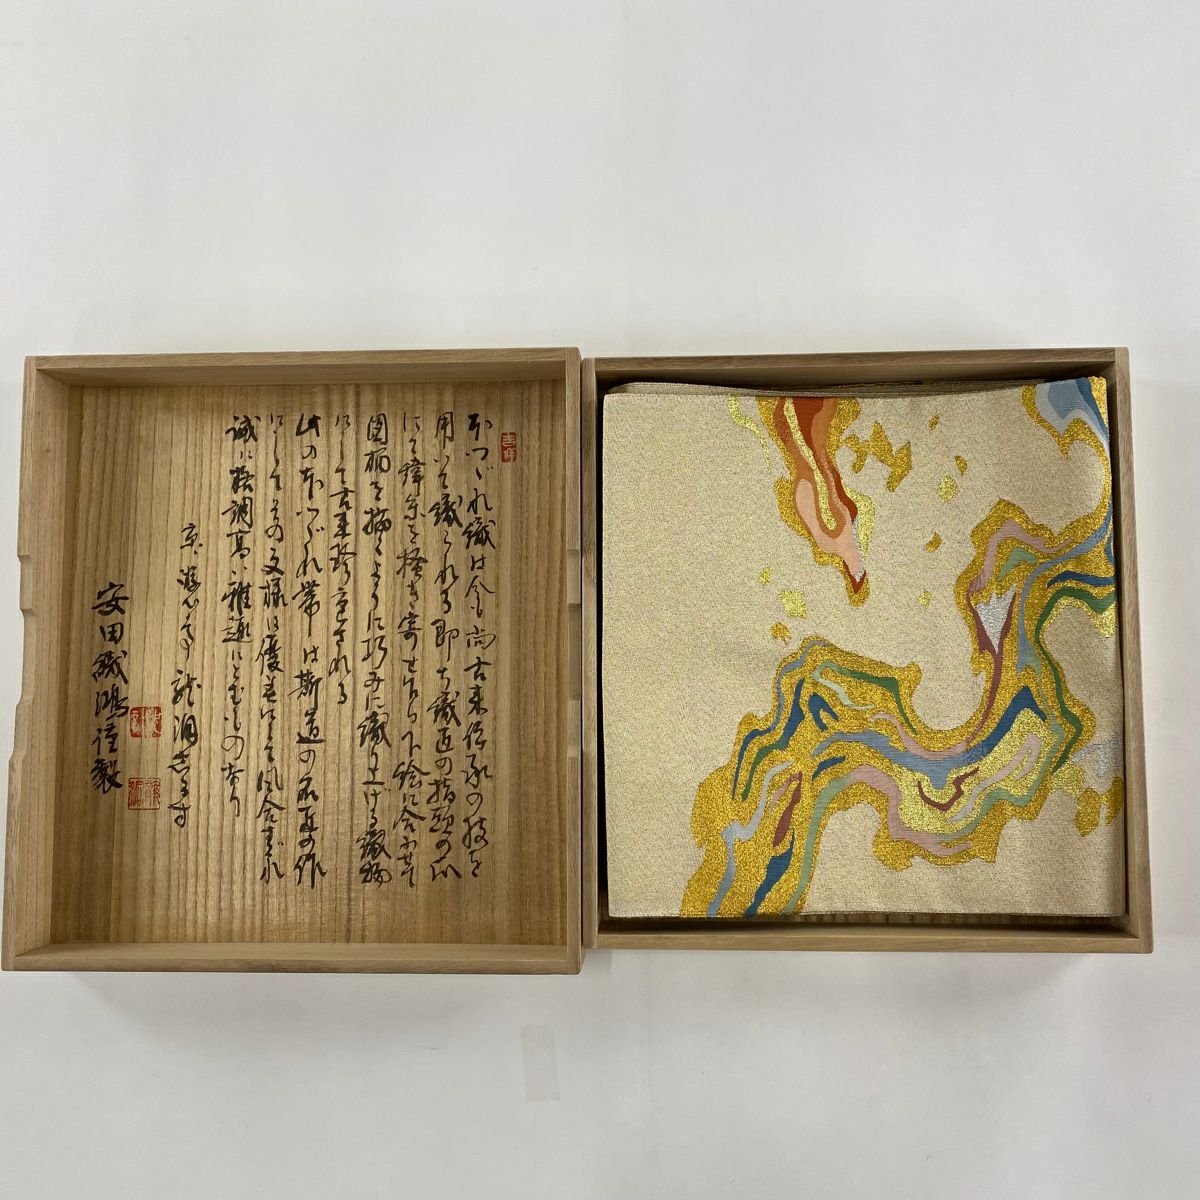 本つづれ織は今も尚古来伝承の技を
用いて織られる即ち織匠の指頭の爪
にて緯糸を掻き寄せ乍ら下絵に合わせて
図柄を描くように巧みに織り上げる織物
にして古来珍重される
此の本つづれ帯は斯道の名匠の作
にしてその文様は優美にして風合すぐれ
誠に格調高い雅趣にとむもの也
京
安田織鴻謹製